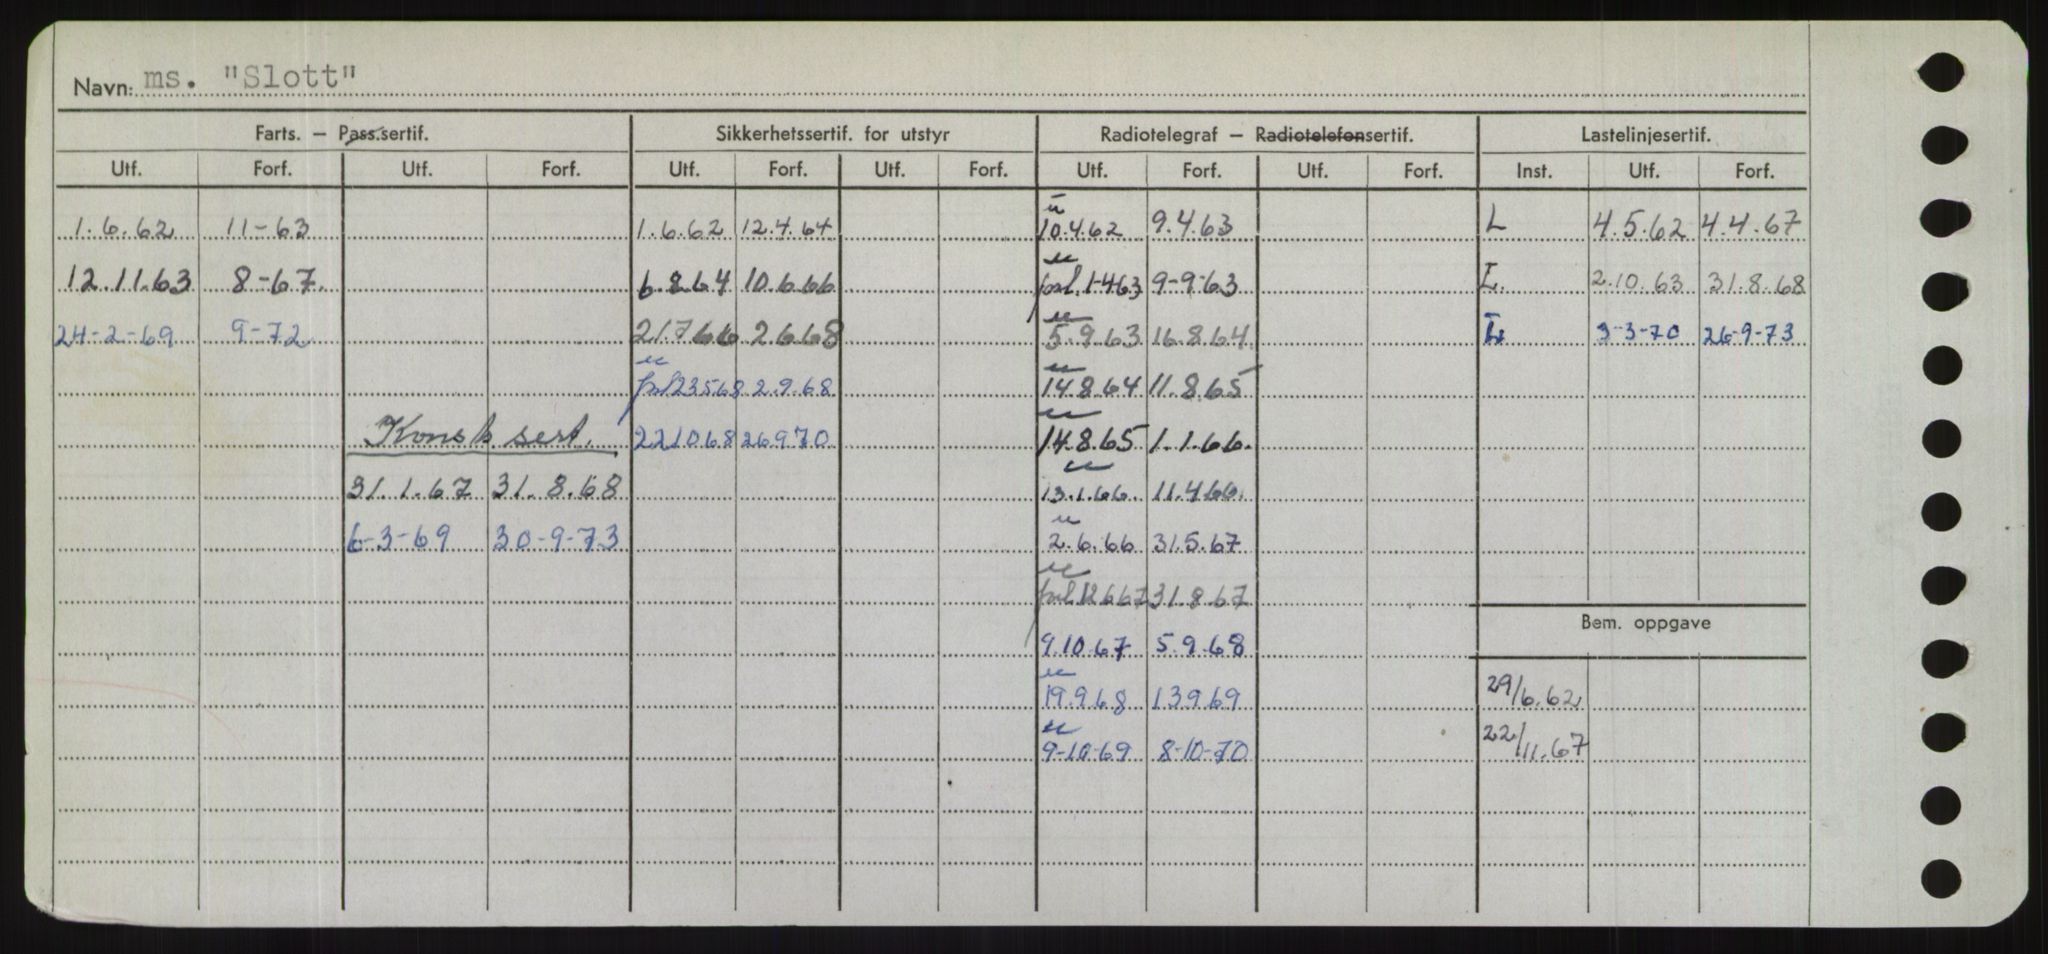 Navn: ms. "Slott"
Farts. — Pass.sertif. Sikkerhetssertif. for utstyr Radiotelegraf — Radiotelefonsertif. Lastelinjesertif.
Utf. Forf. Utf. Forf. Utf. Forf. Utf. Forf. Utf. Forf. Utf. Forf. Inst. Utf. Forf.
u
1.6.62 11-63 1.6.62 12.4.64 10.4.62 9.4.63 L 4.5.62 4.4.67
u
12.11.63 8-67. 6.8.64 10.6.66 forl. 1-4.63 9-9-63 L. 2.10.63 31.8.68
u
24-2-69 9-72 21.7.66 2.6.68 5.9.63 16.8.64. L 3-3-70 26-9-73
u u
forl 23.5.68 2.9.68 14.8.64 11.8.65
u
Konsk sert. 22.10.68 26.9.70 14.8.65 1.1.66.
u
31.1.67 31.8.68 13.1.66. 11.4.66.
u
6-3-69 30-9-73 2.6.66 31.5.67
u
forl. 12.6.67 31.8.67
Bem. oppgave
9.10.67 5.9.68
u
19.9.68 13.9.69 29/6.62
u
9-10-69 8-10-70 22/11.67